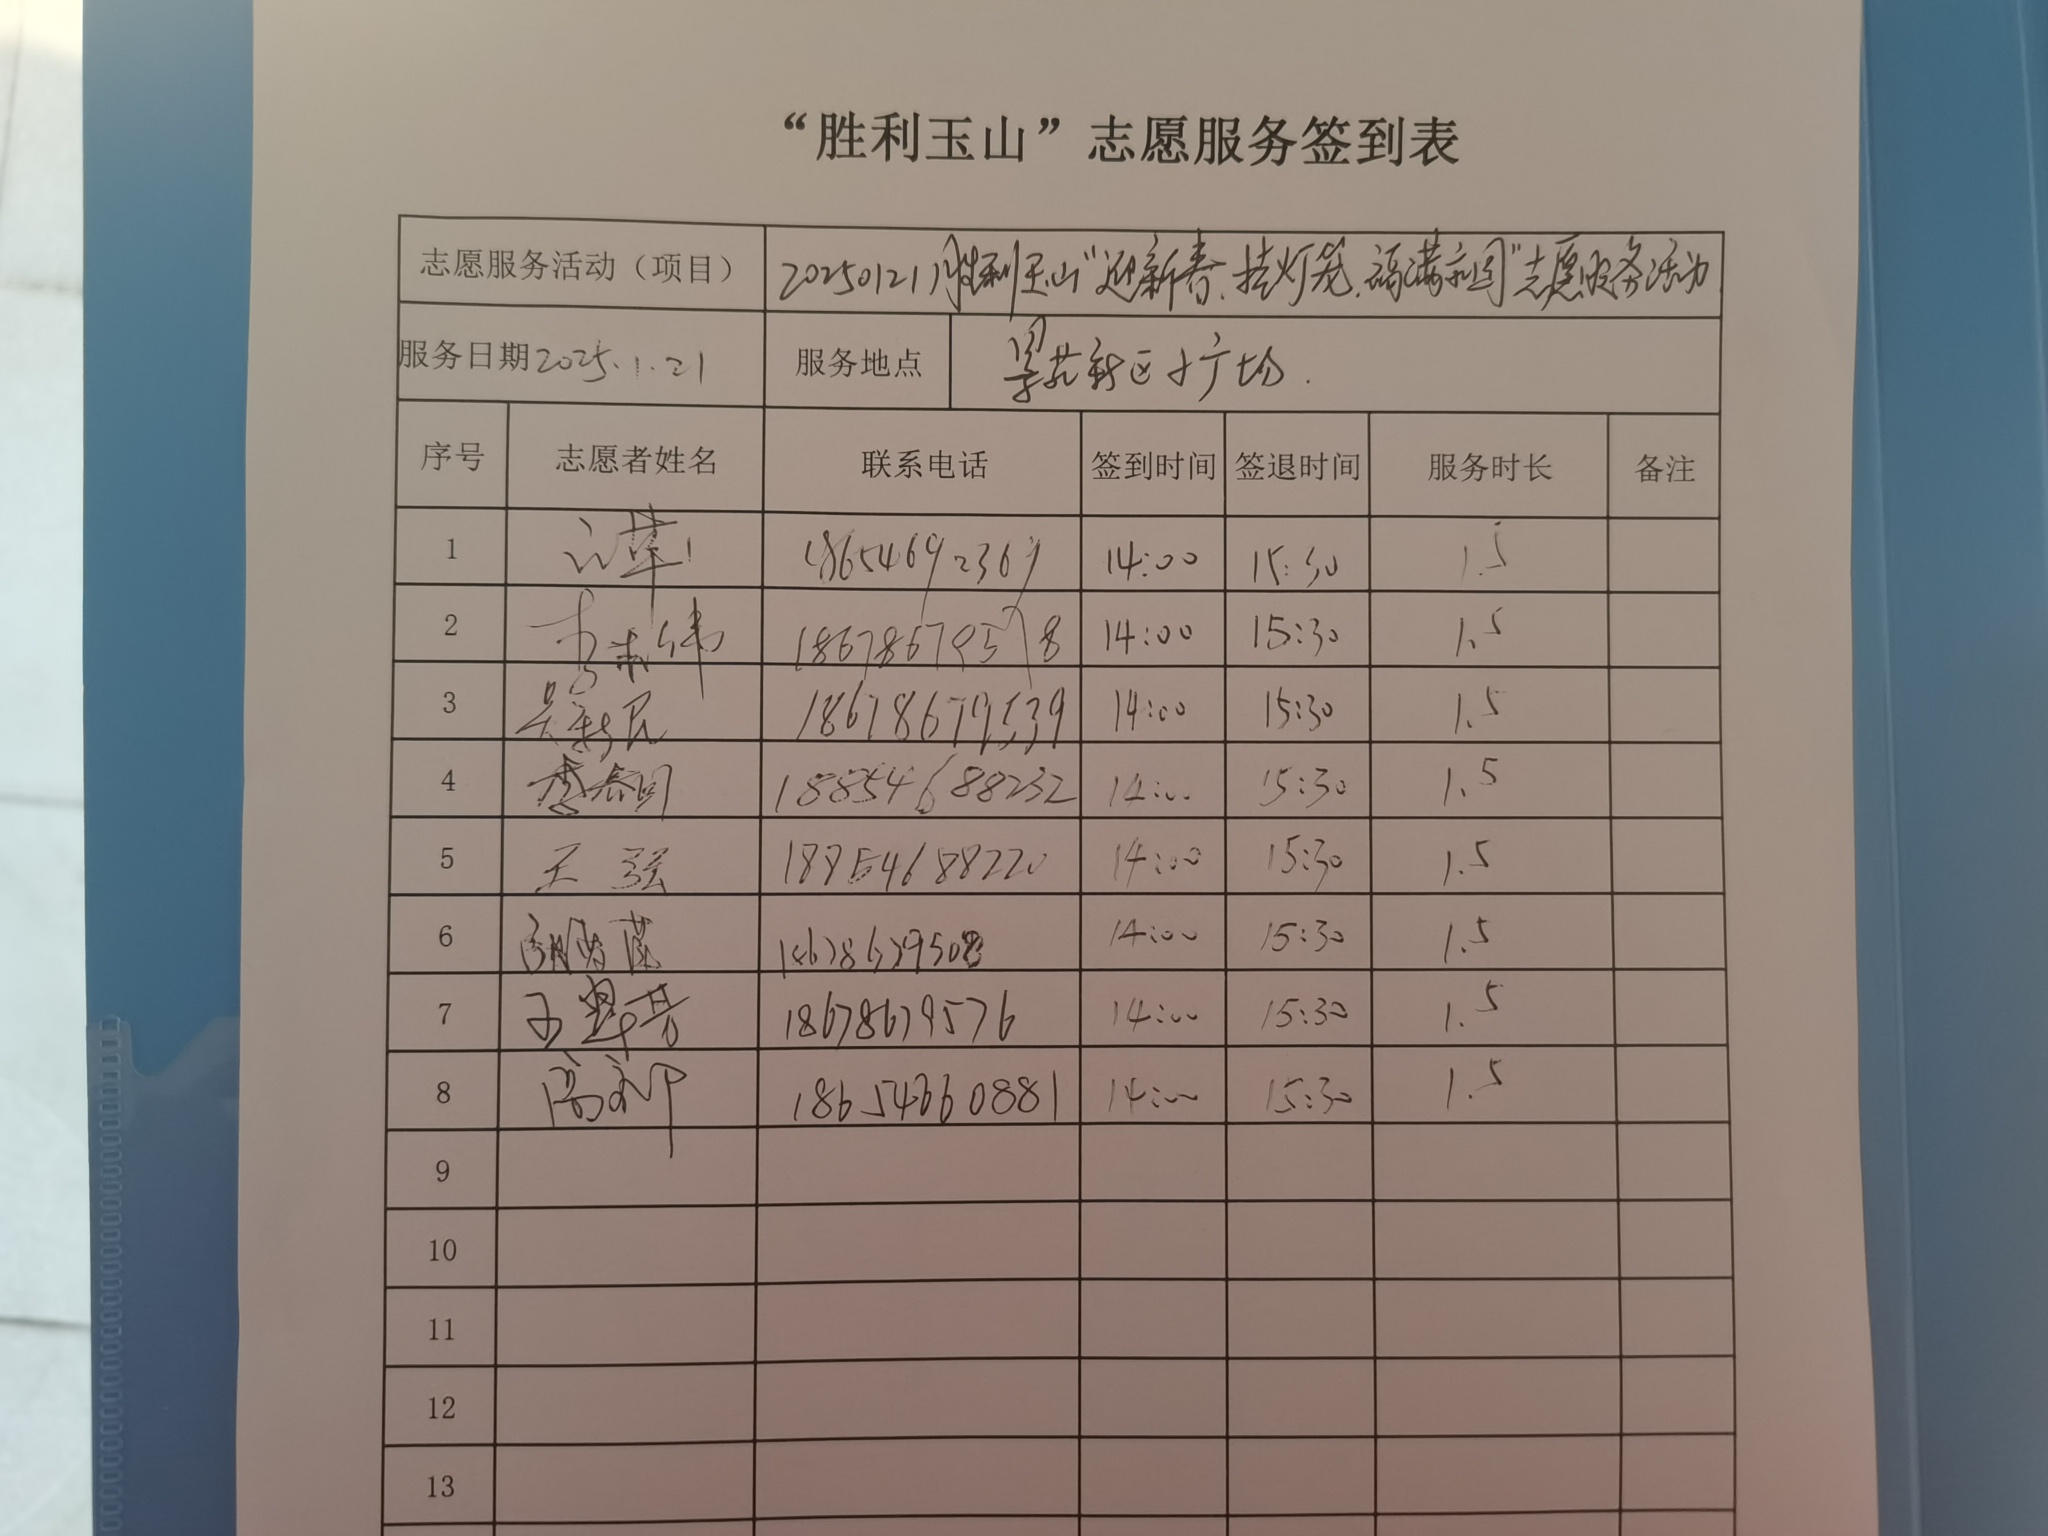 “胜利玉山”志愿服务签到表
志愿服务活动（项目） 20250121胜利玉山“迎新春、挂灯笼、福满家园”志愿服务活动
服务日期 2025.1.21 服务地点 景苑新区小广场.
序号 志愿者姓名 联系电话 签到时间 签退时间 服务时长 备注
1 14:00 15:30 1.5
2 18678679578 14:00 15:30 1.5
3 吴新民 18678679539 14:00 15:30 1.5
4 18854688232 14:00 15:30 1.5
5 王强 18854688220 14:00 15:30 1.5
6 18678679508 14:00 15:30 1.5
7 18678679576 14:00 15:30 1.5
8 18654660881 14:00 15:30 1.5
9
10
11
12
13